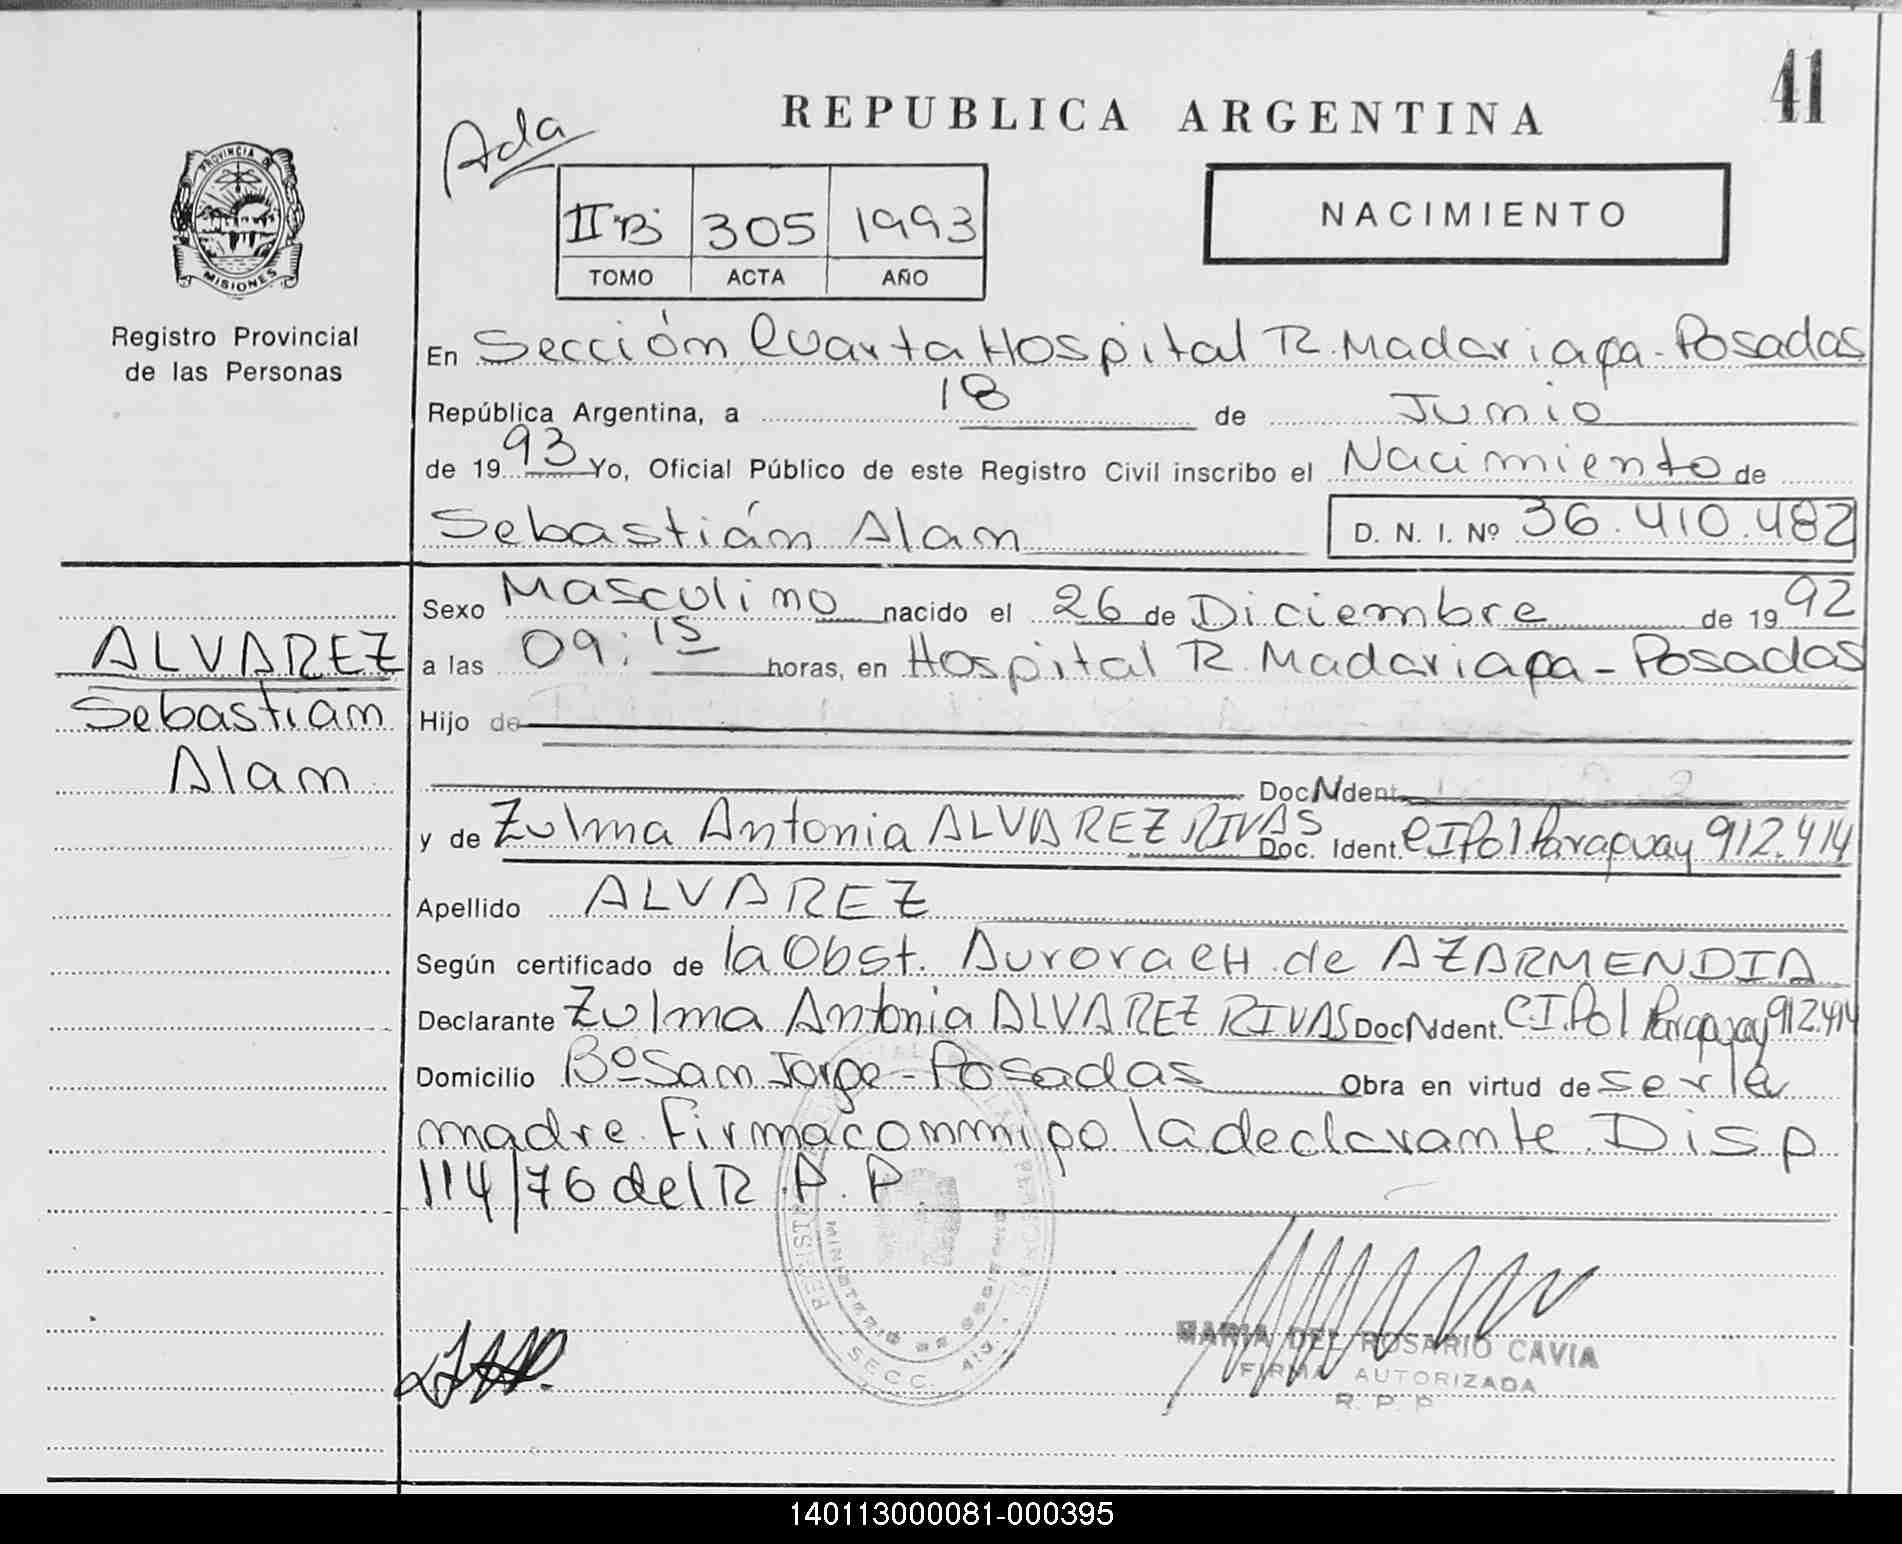 41
REPUBLICA ARGENTINA
Ada
PROVINCIA DE
MISIONES
II "B" 305 1993
TOMO ACTA AÑO
NACIMIENTO
Registro Provincial
de las Personas
En Sección Cuarta Hospital R. Madariaga - Posadas
República Argentina, a 18 de Junio
de 1993 Yo, Oficial Público de este Registro Civil inscribo el Nacimiento de
Sebastián Alam D. N. I. Nº 36.410.482
Sexo Masculino nacido el 26 de Diciembre de 1992
ALVAREZ
Sebastian
Alam
a las 09:15 horas, en Hospital R. Madariaga - Posadas
Hijo de
Doc. Ident.
y de Zulma Antonia ALVAREZ RIVAS Doc. Ident. C I Pol Paraguay 912.414
Apellido ALVAREZ
Según certificado de la Obst. Aurora CH de AZARMENDIA
Declarante Zulma Antonia ALVAREZ RIVAS Doc. Ident. C.I. Pol Paraguay 912.414
Domicilio Bº San Jorge - Posadas Obra en virtud de ser la
madre. Firma conmigo la declarante. Disp
114/76 del R.P.P.
MINISTERIO DE GOBIERNO
SECC. 4ta
MARIA DEL ROSARIO CAVIA
FIRMA AUTORIZADA
R. P. P.
140113000081-000395